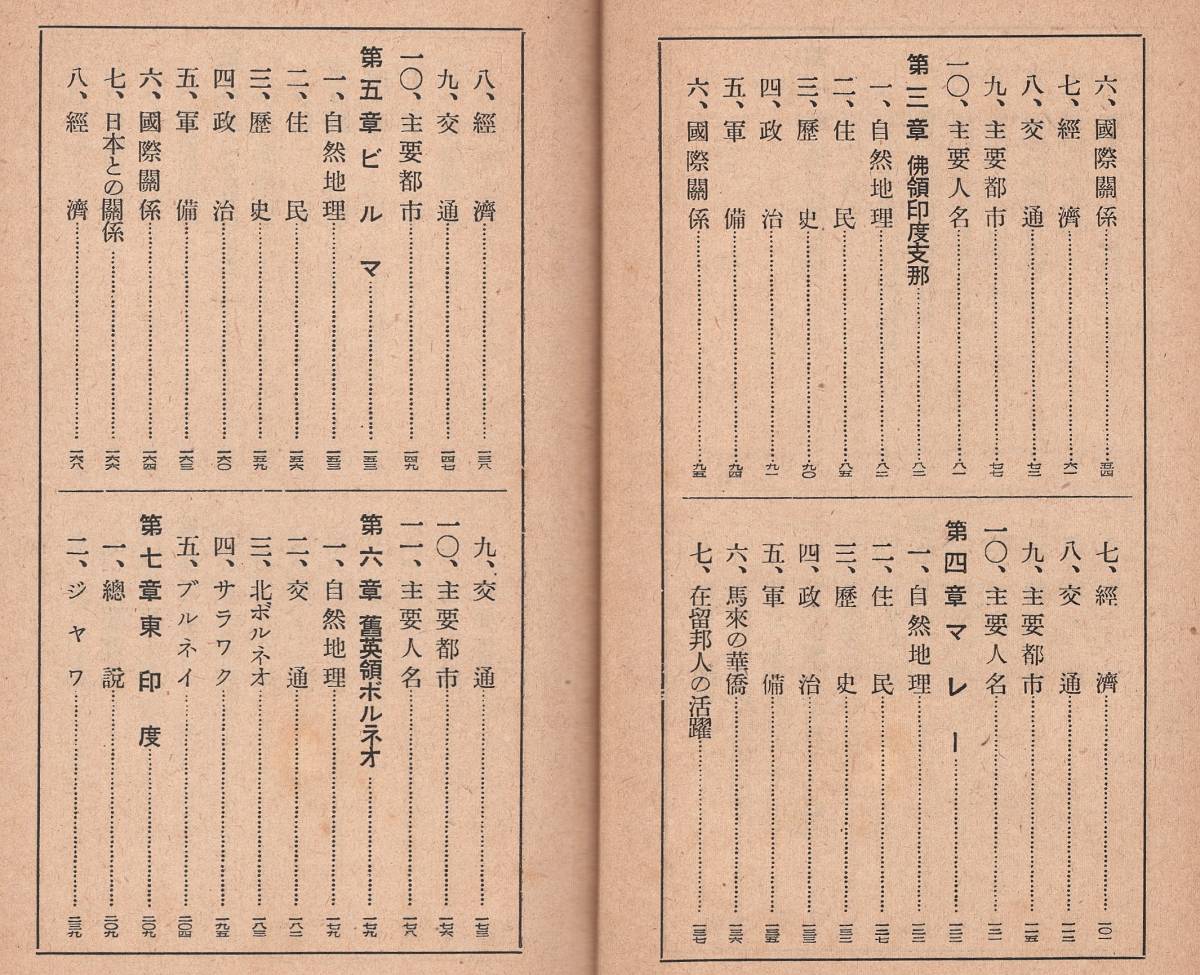 六、國際關係 五四
七、經濟 六一
八、交通 七三
九、主要都市 七七
一〇、主要人名 八一
第三章 佛領印度支那 八三
一、自然地理 八三
二、住民 八五
三、歷史 九〇
四、政治 九一
五、軍備 九四
六、國際關係 九五
七、經濟 一〇一
八、交通
九、主要都市
一〇、主要人名
第四章マレー
一、自然地理
二、住民
三、歷史
四、政治
五、軍備
六、馬來の華僑 一三六
七、在留邦人の活躍 一三七
八、經濟 一三八
九、交通 一四七
一〇、主要都市 一四九
第五章ビルマ 一五三
一、自然地理 一五三
二、住民 一五六
三、歷史 一五九
四、政治 一六〇
五、軍備 一六三
六、國際關係 一六四
七、日本との關係 一六六
八、經濟 一六八
九、交通 一七三
一〇、主要都市 一七六
一一、主要人名 一七八
第六章 舊英領ボルネオ 一七九
一、自然地理 一七九
二、交通
三、北ボルネオ 一八三
四、サラワク 一九五
五、ブルネイ 二〇四
第七章東印度 二〇九
一、總說 二〇九
二、ジヤワ 二三九